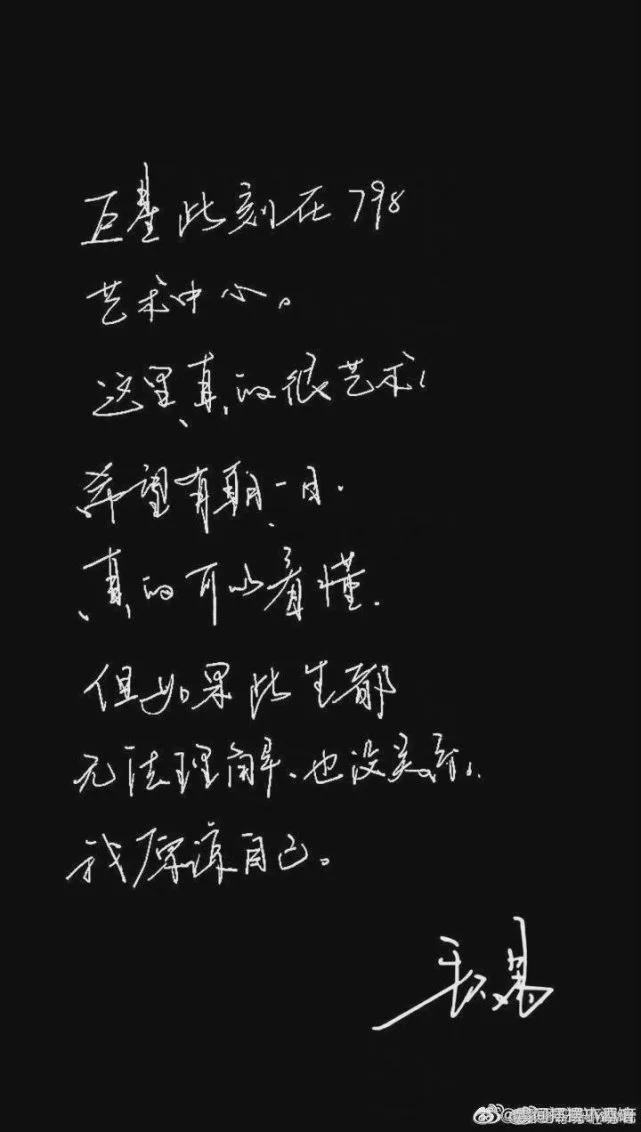 巨基此刻在798
艺术中心。
这里真的很艺术!
希望有朝一日.
真的可以看懂.
但如果此生都
无法理解、也没关系,
我原谅自己。